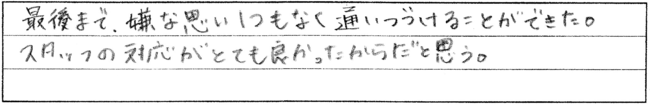 最後まで、嫌な思い1つもなく通いつづけることができた。
スタッフの対応がとても良かったからだと思う。